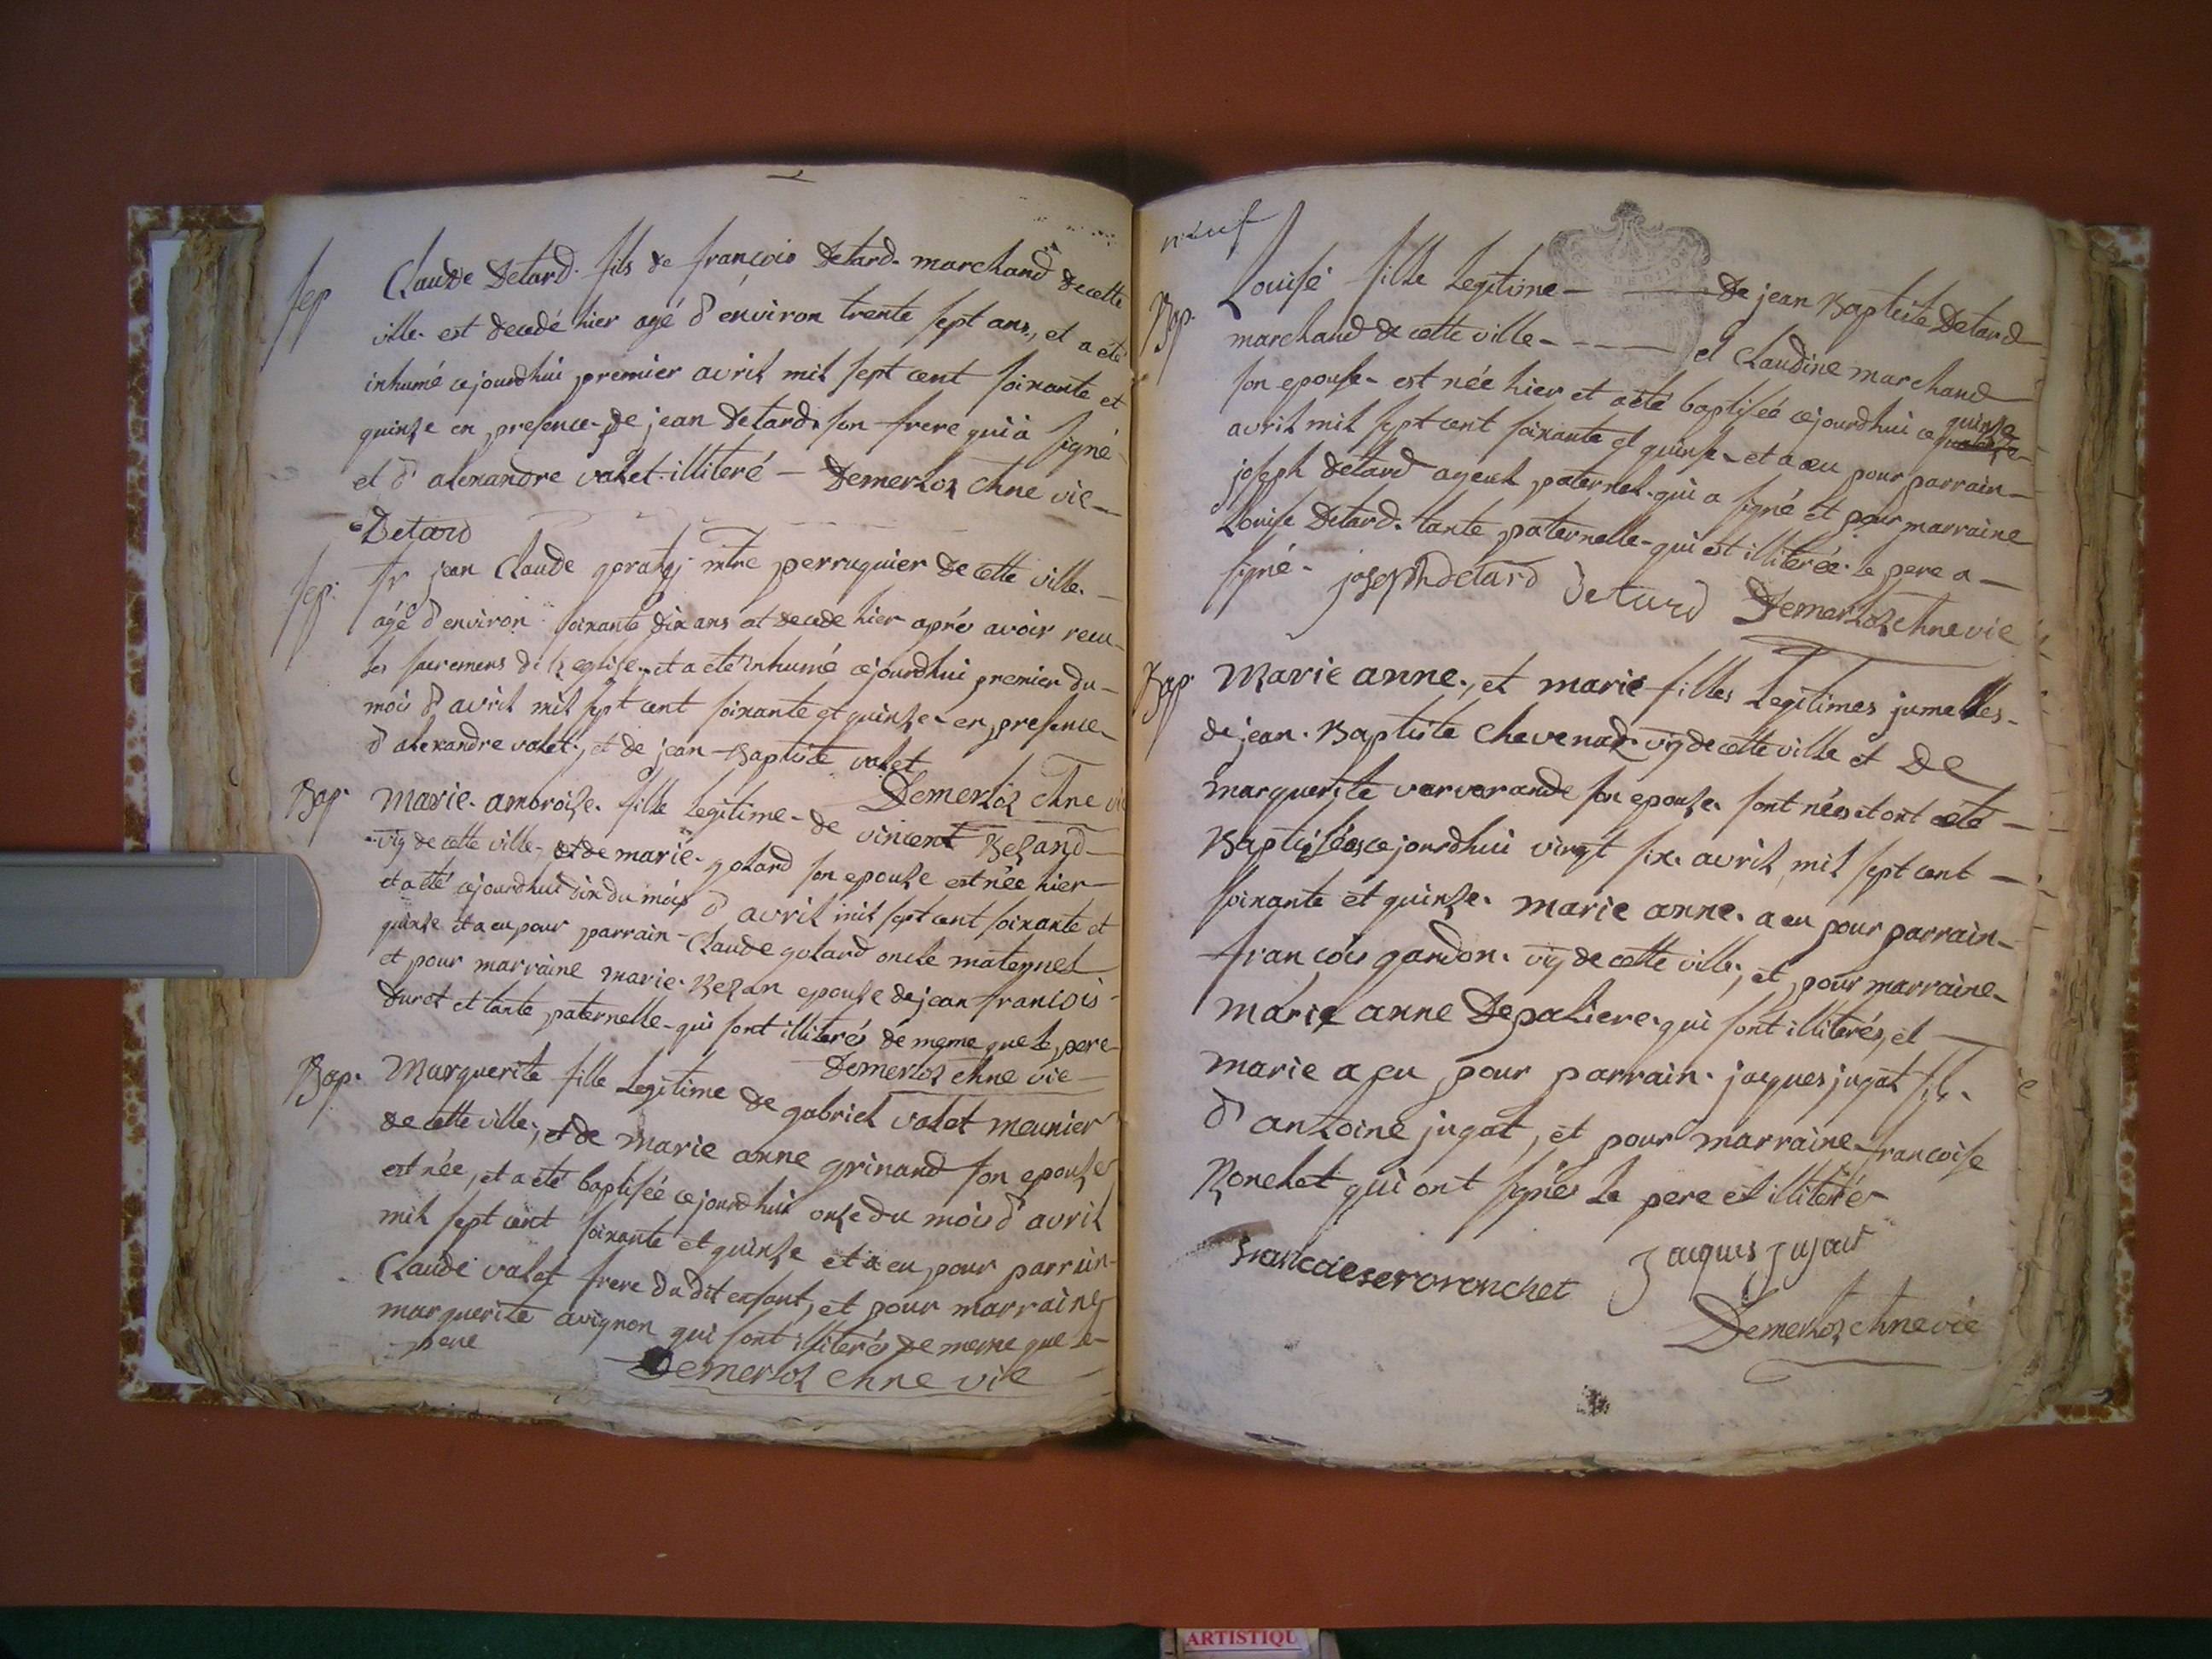 sep Claude Detard fils de françois Detard marchand de cette
ville est decedé hier agé d'environ trente sept ans, et a été
inhumé cejourdhui premier avril mil sept cent soixante et
quinze en presence de jean Detard son frere qui a signé
et d'alexandre valet illiteré - Demerloz chne vic
Detard
sep. Sr jean Claude mtre perruquier de cette ville
âgé d'environ soixante dix ans et decede hier aprés avoir recu
les sacremens de l'eglise et a eté inhumé cejourdhui premier du
mois d'avril mil sept cent soixante et quinze en presence
d'alexandre valet, et de jean Baptiste valet
Demerloz chne vic
Bap. Marie ambroize fille legitime de vincent Bezand
vig de cette ville, et de marie golard son epouze est née hier
et a été cejourdhui dix du mois d'avril mil sept cent soixante et
quinze et a eu pour parrain Claude golard oncle maternel
et pour marraine marie Bezan epouze de jean francois
duret et tante paternelle qui sont illiterés de meme que le pere
Demerloz chne vic
Bap. Marguerite fille legitime de gabriel valet meunier
de cette ville, et de marie anne grinand son epouze
est née, et a été baptiséé cejourdhui onze du mois d'avril
mil sept cent soixante et quinze et a eu pour parrain
Claude valet frere du dit enfant, et pour marraine
marguerite avignon qui sont illiterés de meme que le
pere
Demerloz chne vic
neuf
Bap. Louise fille legitime - de jean Baptiste Detard
marchand de cette ville - - - - et Claudine marchand
son epouse est née hier et a été baptiséé cejourdhui ce quinze
avril mil sept cent soixante et quinse et a eu pour parrain
joseph detard ayeul paternel qui a signé et pour marraine
Louise Detard tante paternelle qui est illiterée le pere a
signé. joseph detard Detard Demerloz chne vic
Bap. Marie anne, et marie filles legitimes jumelles
de jean Baptiste Chevenad vig de cette ville et de
marguerite varvarande son epouze sont nées et ont été
Baptisées cejourdhui vingt six avril mil sept cent
soixante et quinze. marie anne a eu pour parrain
françois gandon vig de cette ville, et pour marraine
marie anne Depaliere qui sont illiterés, et
marie a eu pour parrain jacques jugat fils
d'antoine jugat, et pour marraine francoise
Ronchet qui ont signés le pere est illiteré
francoiese roronchet jaques jujat
Demerloz chne vic
ARTISTIQU